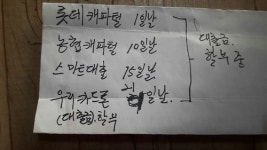 롯데캐피털 1일날
농협캐피털 10일날
스마트대출 15일날
우리카드론 21일날.
(대출금)할부
대출금.
할부 준